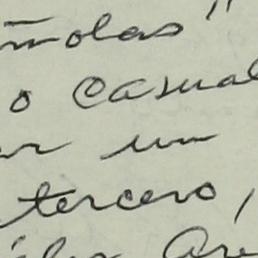 ñolas"
o casual
r un
tercero,